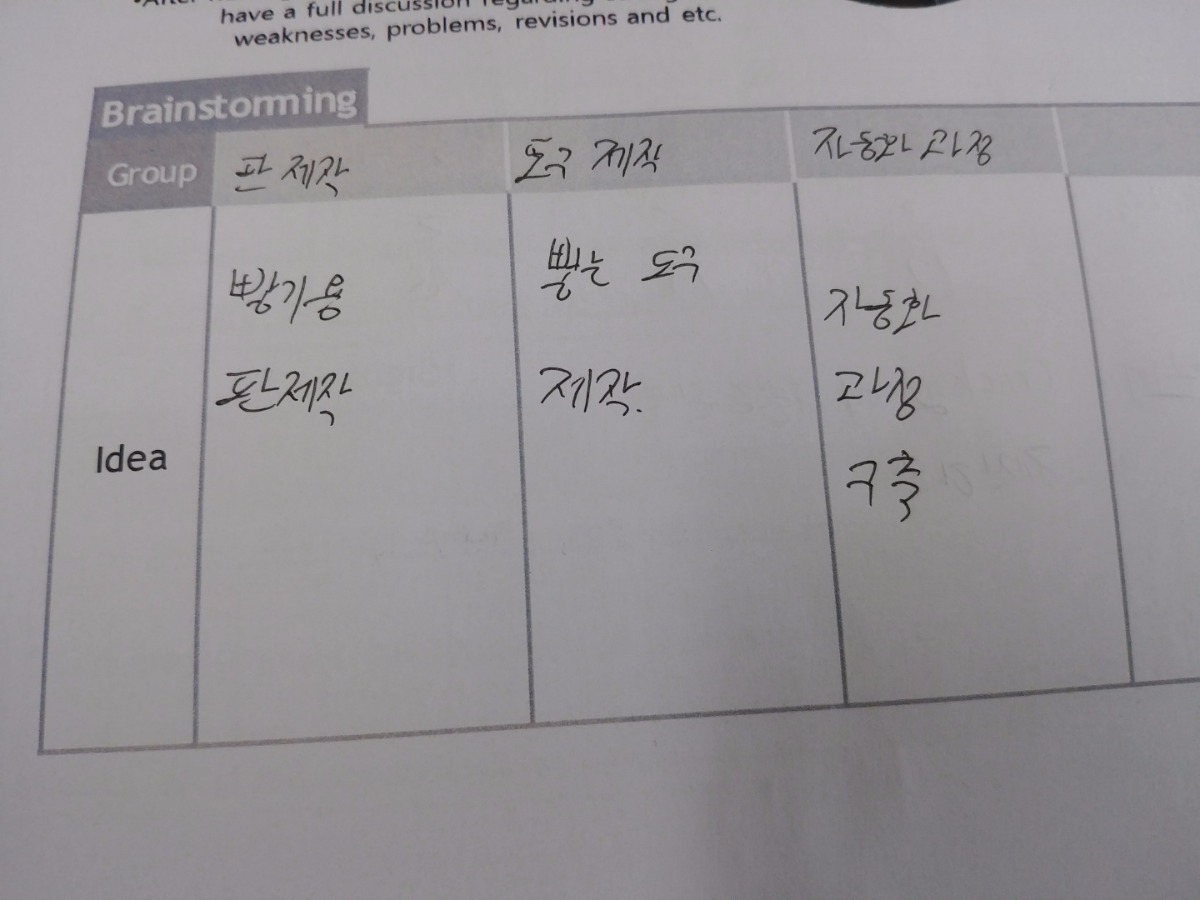 have a full discussion regarding
weaknesses, problems, revisions and etc.
Brainstorming
Group 판 제작 도구 제작 자동화 과정
제작
도구
자동화
판제작
제작.
과정
구축
Idea